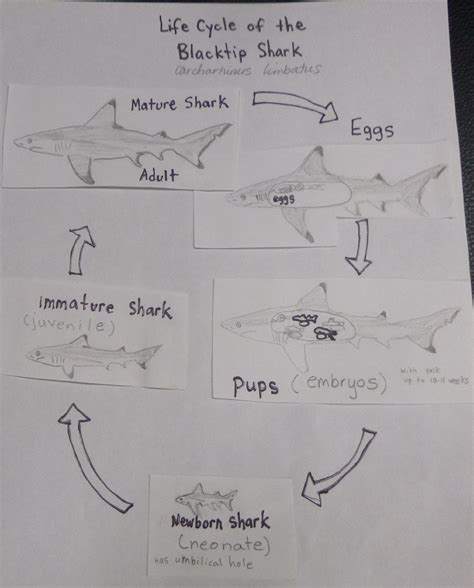 Life Cycle of the
Blacktip Shark
Carcharhinus limbatus
Mature Shark
Adult
Eggs
eggs
Immature Shark
(juvenile)
Pups (embryos)
with yolk
up to 10-11 weeks
Newborn Shark
(neonate)
has umbilical hole